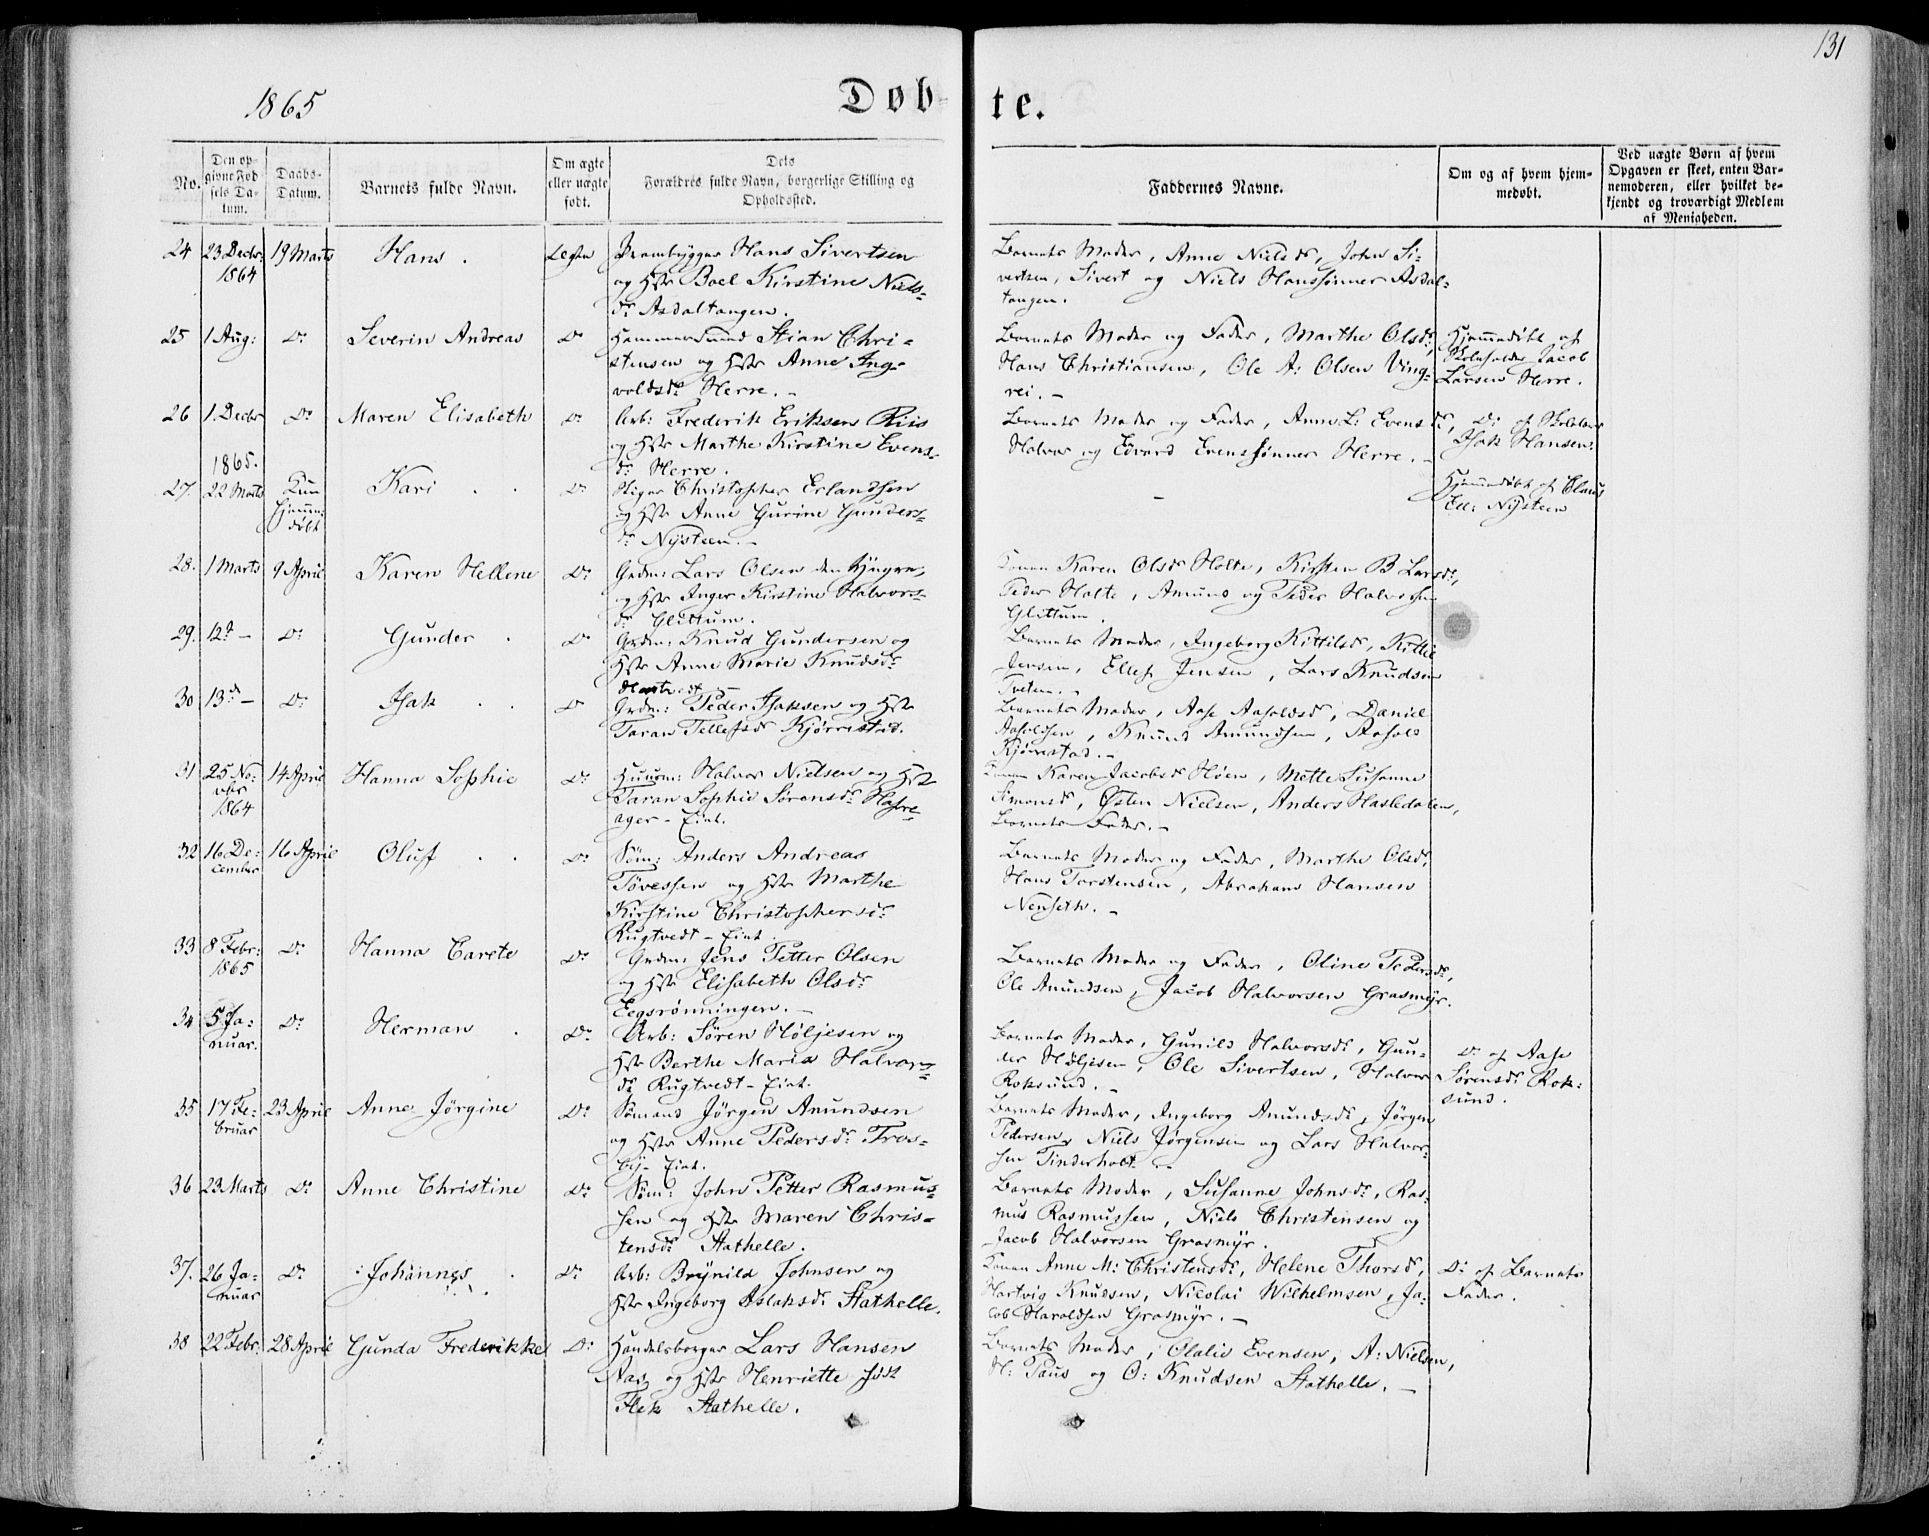 131
1865
Døb-te.
No.
Den opgivne Fødsels Datum.
Daabs-Datum.
Barnets fulde Navn.
Om ægte eller uægte født.
Dets Forældres fulde Navn, borgerlige Stilling og Opholdssted.
Faddernes Navne.
Om og af hvem hjemmedøbt.
Ved uægte Børn af hvem Opgaven er skeet, enten Barnemoderen, eller hvilket bekjendt og troværdigt Medlem af Menigheden.
24 23 Decbr. 1864 19 Marts Hans. Ægte
Prambygger Hans Sivertsen
og Hst Boel Kirstine Niels-
dr Asdaltangen.
Barnets Moder, Anne Nielsdr, John Si-
vertsen, Sivert og Niels Hanssønner Asdal-
tangen.
25 1 Aug: Do Severin Andreas Do
Hammersmed Stian Chri-
stensen og Hst Anne Ing-
voldsdr Herre. -
Barnets Moder og Fader, Marthe Olsdr,
Hans Christiansen, Ole A: Olsen Ving-
rei. -
Hjemmedøbt af
Skoleholder Jacob
Larsen Herre.
26 1. Decbr Do Maren Elisabeth Do
Arb: Frederik Eriksen Riis
og Hst Marthe Kirstine Evens-
dr Herre.
Barnets Moder og Fader, Anne L: Evensdr,
Halvor og Edvard Evenssønner Herre. -
Do af
Isak Hansen.
1865.
27. 22 Marts Kun hjemme-døbt Kari Do
Christopher Erlandsen
og Hst Anne Gurine Gunders-
dr Nysteen. -
-
Hjemmedøbt af Claus
Ell: Nysteen
28. 1 Marts 9 April Karen Hellene Do
Grdm: Lars Olsen den Yngre,
og Hst Inger Kirstine Halvors-
dr Glittum.
Konen Karen Olsdr Holte, Kirsten B Larsdr,
Peder Holte, Amund og Peder Halvorsen
Glittum.
29. 12t - Do Gunder Do
Grdm: Knud Gundersen og
Hst Anne Marie Knudsdr
Barnets Moder, Ingeborg Kittilsdr, Kittil
Jensen, Ellef Jensen, Lars Knudsen
Tveten. -
30 13d - Do Isak Do
Grdm: Peder Isaksen og Hst
Taran Tellefsdr Kjørrestad.
Barnets Moder, Aase Aasoldsdr, Daniel
Aasoldsen, Knud Amundsen, Aasold
Kjørrestad. -
31 25 No-vbr 1864 14 April Hanna Sophie Do
Huusm: Halvor Nielsen og Hst
Taran Sophie Sørensdr Hasse-
ager - Eint.
Konen Karen Jacobsdr Høen, Mette Susanne
Simonsdr, Østen Nielsen, Anders Hasledalen,
Barnets Fader. -
32 16 De-cember 16 April Oluf Do
Søm: Anders Andreas
Tövessen og Hst Marthe
Kirstine Christophersdr
Rugtvedt - Eint.
Barnets Moder og Fader, Marthe Olsdr,
Hans Torstensen, Abraham Hansen
Nenseth. -
33 8 Febr: 1865 Do Hanna Carete Do
Grdm: Jens Petter Olsen
og Hst Elisabeth Olsdr
Eegsrønningen. -
Barnets Moder og Fader, Oline Pedersdr,
Ole Amundsen, Jacob Halvorsen Grasmyr.
34 5 Ja-nuar. Do Herman Do
Arb: Søren Höljesen og
Hst Berthe Maria Halvors-
dr Rugtvedt - Eint.
Barnets Moder, Gunild Halvorsdr, Gun-
der Höljesen, Ole Sivertsen, Halvor
Roksund. -
Do af Aase
Sørensdr Rok-
sund.
35 17 Fe-bruar 23 April Anne Jørgine Do
Sømand Jörgen Anundsen
og Hst Anne Pedersdr Tros-
by - Eint.
Barnets Moder, Ingeborg Anundsdr, Jörgen
Pedersen, Niels Jörgensen og Lars Halvor-
sen Tinderholt. -
36 23 Marts Do Anne Christine Do
Søm: John Petter Rasmus-
sen og Hst Maren Chris-
tensdr Stathelle.
Barnets Moder, Susanne Johnsdr, Ras-
mus Rasmussen, Niels Christensen og
Jacob Halvorsen Grasmyr.
37. 26 Ja-nuar Do Johannes Do
Arb: Brynild Johnsen og
Hst Ingeborg Aslaksdr Stathelle.
Konen Anne M: Christensdr, Helene Thorsdr,
Hartvig Knudsen, Nicolai Wilhelmsen, Ja-
cob Haraldsen Grasmyr. -
Do af Barnets
Fader.
38 22 Febr. 28 April Gunda Frederikke Do
Handelsborger Lars Hansen
Aas og Hst Henriette født
Flek Stathelle.
Barnets Moder, Olalie Evensen, A: Nielsen,
H: Paus og O: Knudsen Stathelle. -